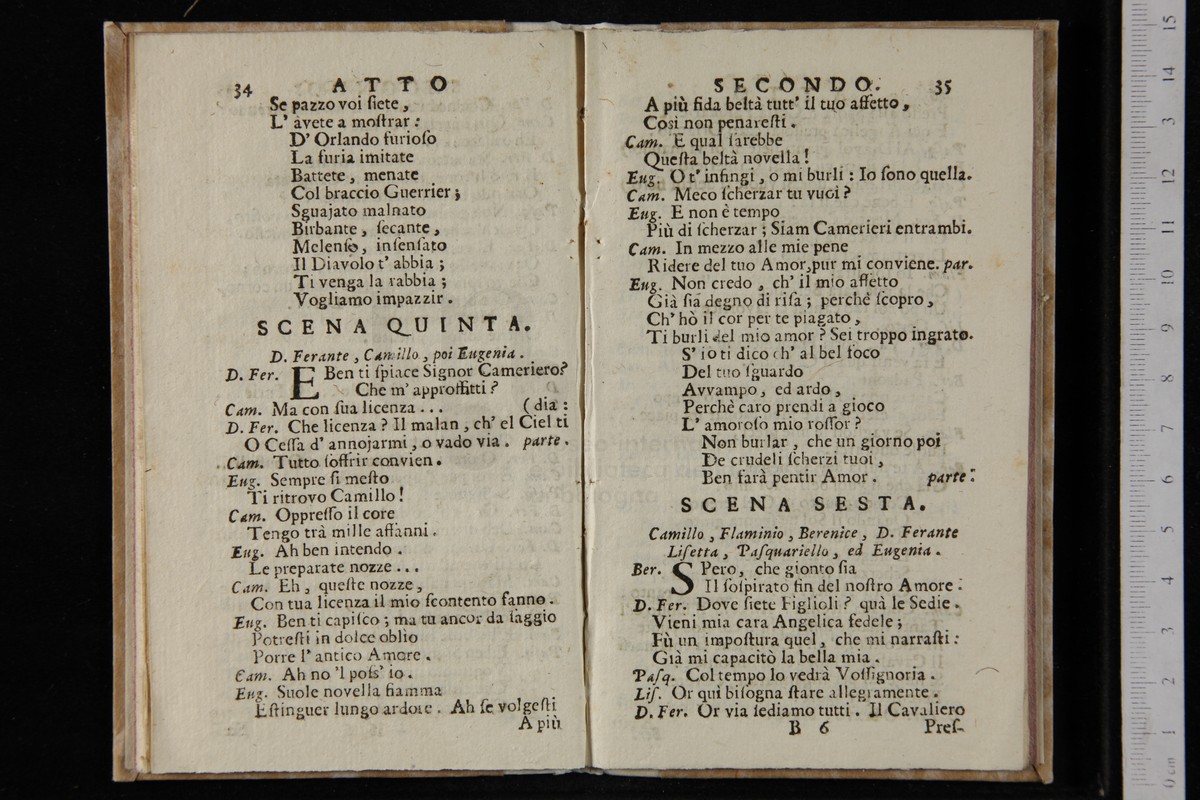 34 ATTO
Se pazzo voi ſiete,
L' avete a moſtrar:
D' Orlando furioſo
La furia imitate
Battete, menate
Col braccio Guerrier;
Sguajato malnato
Birbante, ſecante,
Melenſo, inſenſato
Il Diavolo t' abbia;
Ti venga la rabbia;
Vogliamo impazzir.
SCENA QUINTA.
D. Ferante, Camillo, poi Eugenia.
D. Fer. E Ben ti ſpiace Signor Cameriero?
Che m' approffitti?
Cam. Ma con ſua licenza... (dia:
D. Fer. Che licenza? Il malan, ch' el Ciel ti
O Ceſſa d' annojarmi, o vado via. parte.
Cam. Tutto ſoffrir convien.
Eug. Sempre ſi meſto
Ti ritrovo Camillo!
Cam. Oppreſſo il core
Tengo trà mille affanni.
Eug. Ah ben intendo.
Le preparate nozze...
Cam. Eh, queſte nozze,
Con tua licenza il mio ſcontento fanno.
Eug. Ben ti capiſco; ma tu ancor da ſaggio
Potreſti in dolce oblio
Porre l' antico Amore.
Cam. Ah no 'l poſs' io.
Eug. Suole novella fiamma
Eſtinguer lungo ardore. Ah ſe volgeſti
A più
SECONDO. 35
A più fida beltà tutt' il tuo affetto,
Così non penareſti.
Cam. E qual ſarebbe
Queſta beltà novella!
Eug. O t' infingi, o mi burli: Io ſono quella.
Cam. Meco ſcherzar tu vuoi?
Eug. E non è tempo
Più di ſcherzar; Siam Camerieri entrambi.
Cam. In mezzo alle mie pene
Ridere del tuo Amor,pur mi conviene. par.
Eug. Non credo, ch' il mio affetto
Già ſia degno di riſa; perchè ſcopro,
Ch' hò il cor per te piagato,
Ti burli del mio amor? Sei troppo ingrato.
S' io ti dico ch' al bel foco
Del tuo ſguardo
Avvampo, ed ardo,
Perchè caro prendi a gioco
L' amoroſo mio roſſor?
Non burlar, che un giorno poi
De crudeli ſcherzi tuoi,
Ben farà pentir Amor. parte.
SCENA SESTA.
Camillo, Flaminio, Berenice, D. Ferante
Liſetta, Paſquariello, ed Eugenia.
Ber. SPero, che gionto ſia
Il ſoſpirato fin del noſtro Amore.
D. Fer. Dove ſiete Figlioli? quà le Sedie.
Vieni mia cara Angelica fedele;
Fù un impoſtura quel, che mi narraſti:
Già mi capacitò la bella mia.
Paſq. Col tempo lo vedrà Voſſignoria.
Liſ. Or quì biſogna ſtare allegramente.
D. Fer. Or via ſediamo tutti. Il Cavaliero
B 6 Preſ-